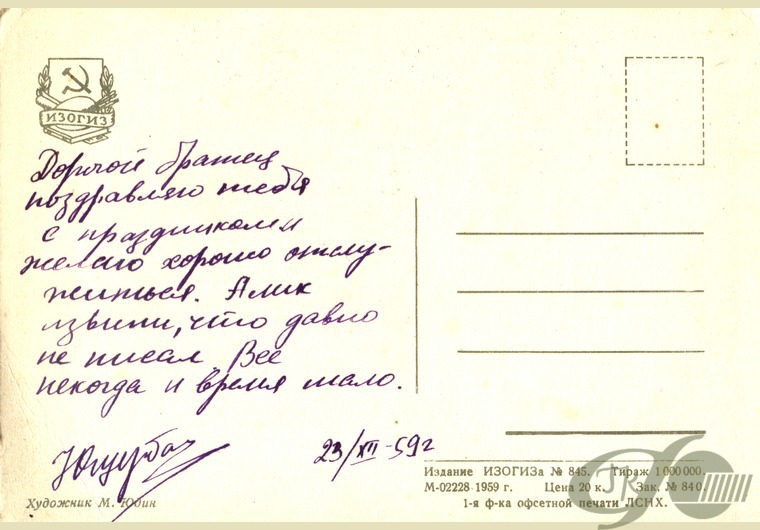 ИЗОГИЗ
Дорогой братец
поздравляю тебя
с праздником и
желаю хорошо отслу-
житься. Алик
извини, что давно
не писал Все
некогда и время мало.
23/XII-59г
Издание ИЗОГИЗа № 845. Тираж 1 000 000.
М-02228 1959 г. Цена 20 к. Зак. № 840.
1-я ф-ка офсетной печати ЛСНХ.
Художник М. Юдин